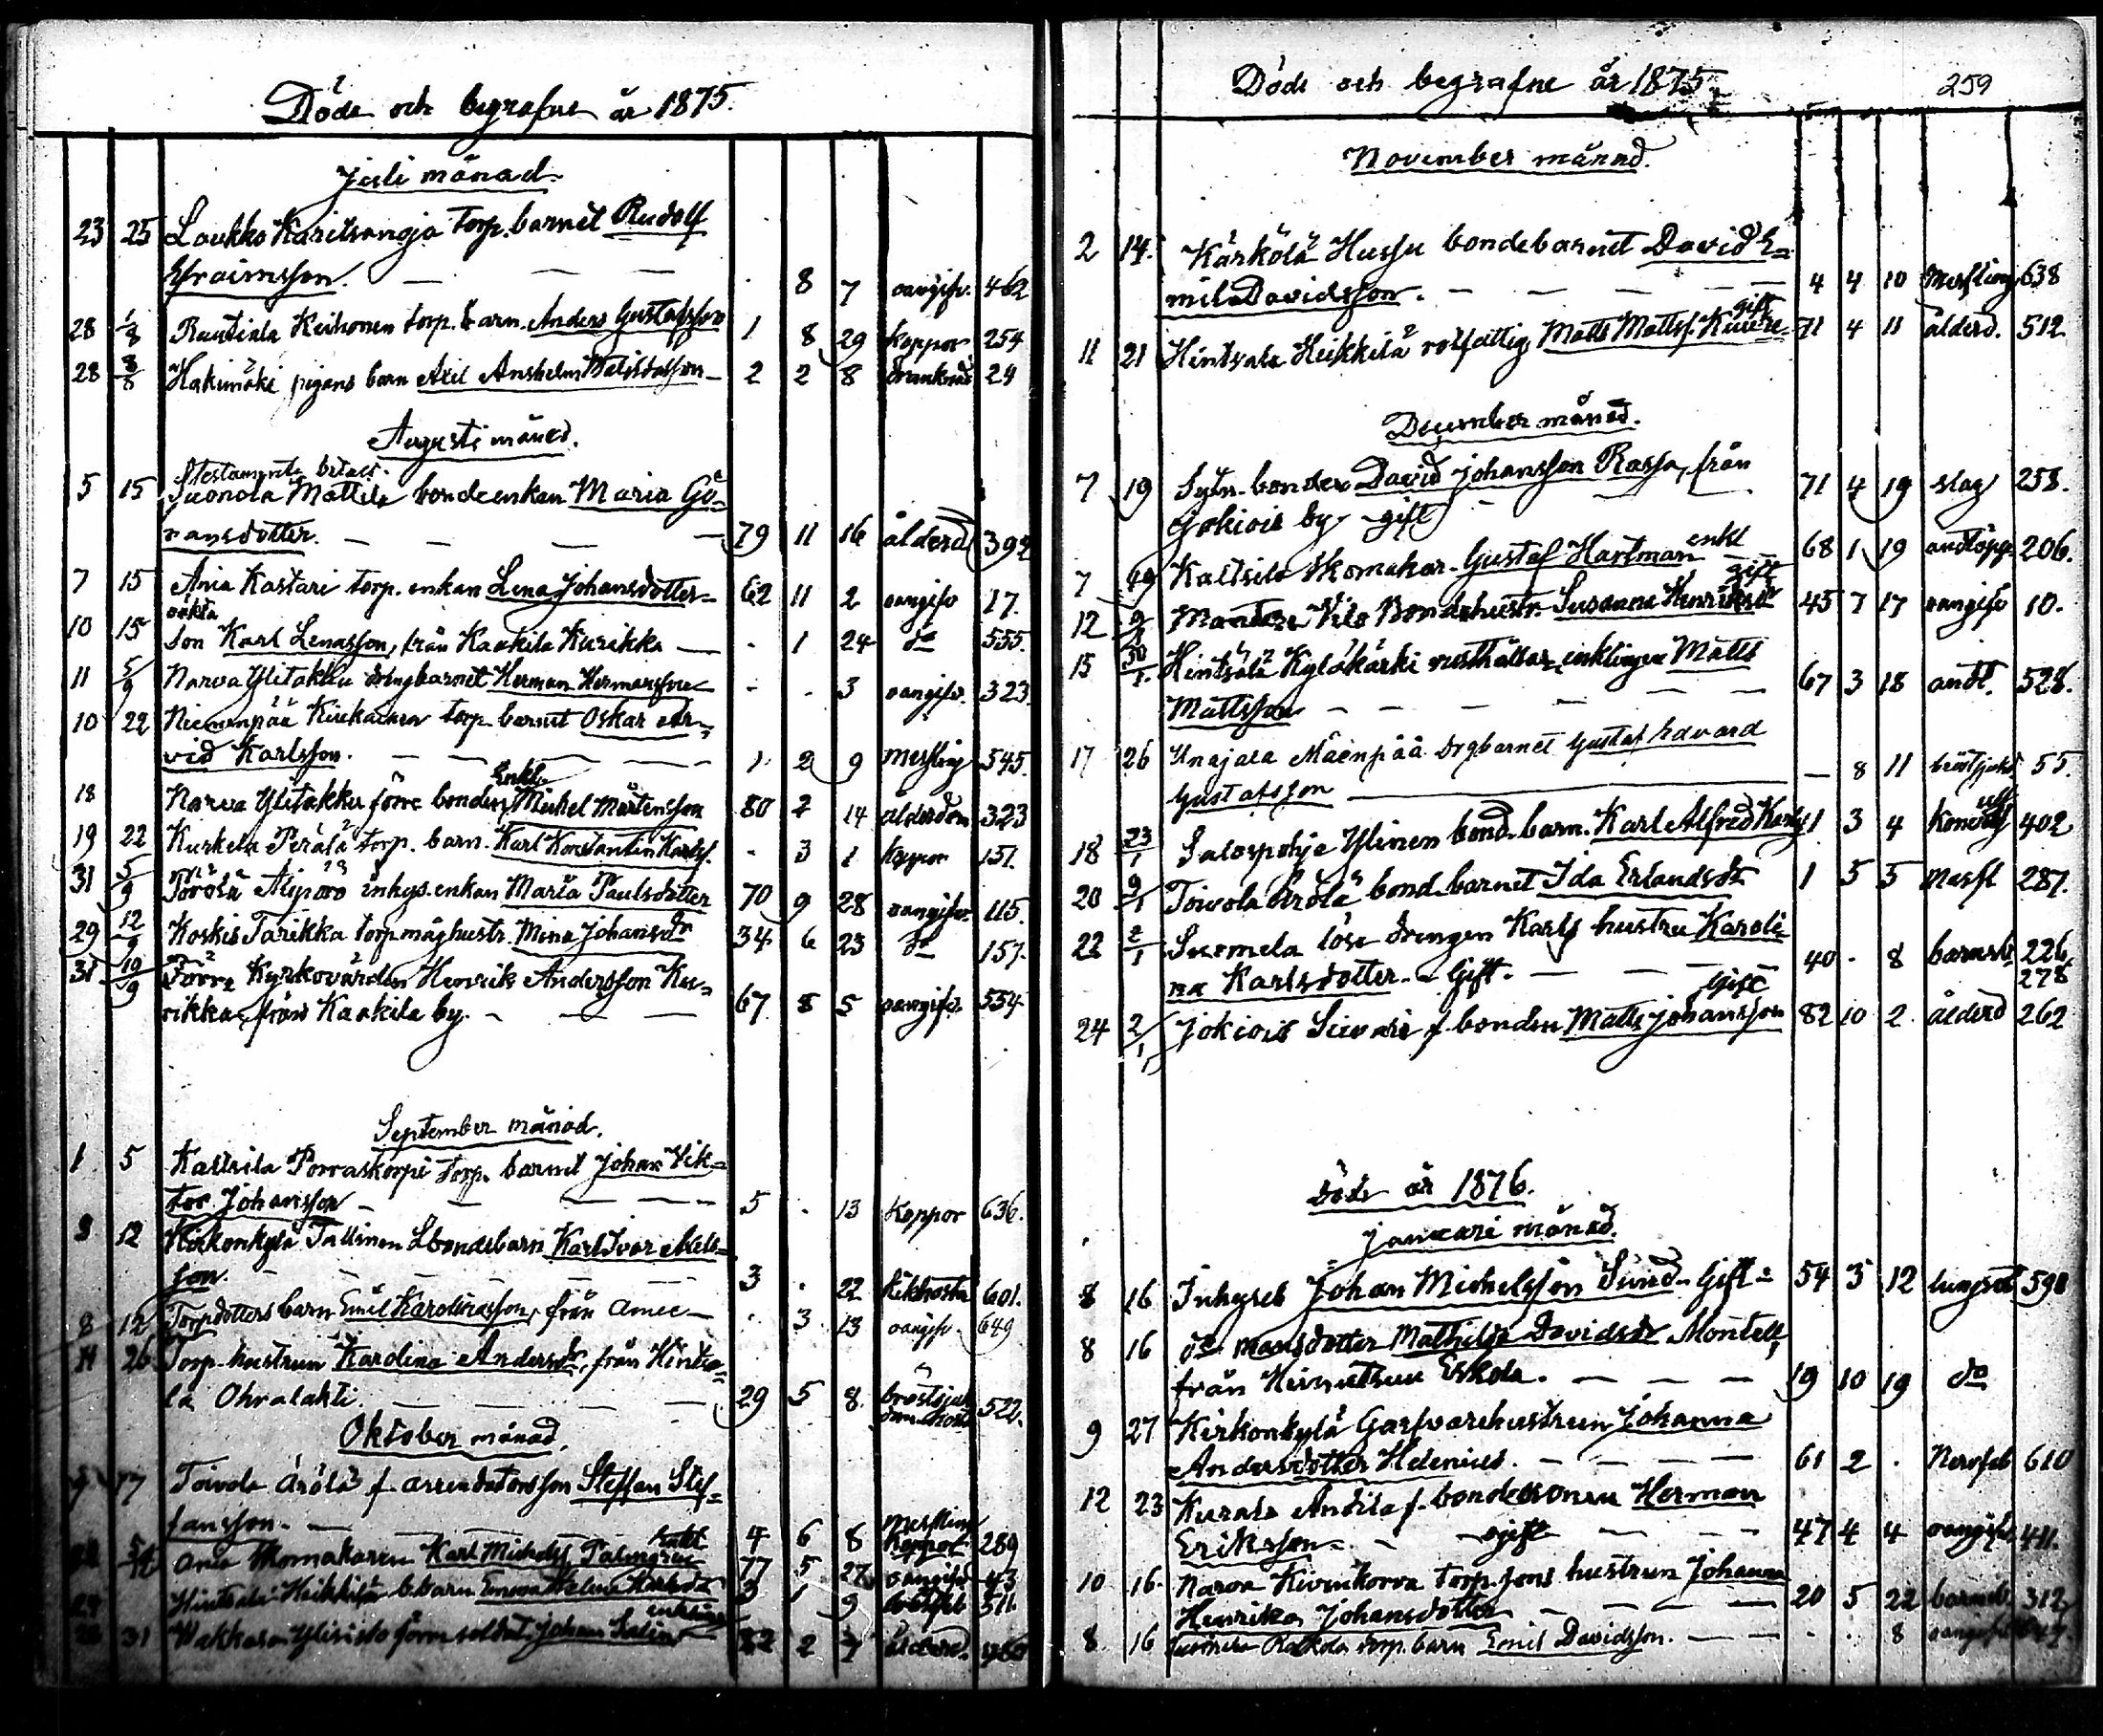 Döde och begrafne år 1875.
Juli månad.
23 25 Laukko Karitsanoja torp. barnet Rudolf
Efraimsson. 8 7 oangifv. 462
28 1/8 Rautiala Keihonen torp. barn. Anders Gustafsson 1 8 29 koppor 254
28 8/8 Hakimäki pigans barn Axel Anshelm 2 2 8 drunknad 24
Augusti månad.
Testamente betalt.
5 15 Suonola Mattila bondeenkan Maria Gö-
ransdotter. 79 11 16 ålderd 392
7 15 Ania Kastari torp. enkan Lena Johansdotter 62 11 2 oangifv 17.
oäkta
10 15 son Karl Lenasson, från Kaakila Kurikka 1 24 do 555.
11 5/9 Narva Ylitakku drengbarnet Herman Hermansson 3 oangifv. 323
10 22 Niemenpää torp barnet Oskar Ar-
vid Karlsson. 1 2 9 Messling 545.
Enkl.
18 Narva Ylitakku förre bonden Michel Mårtensson 80 2 14 ålderdom 323
19 22 Kurkela Perälä torp. barn. Karl Konstantin Karlss. 3 1 koppor 151.
31 5/9 inhys. enkan Maria Paulsdotter 70 9 28 oangifv. 115.
29 12/9 Koskis Tarikka torp måghustr. Mina Johansdr 34 6 23 do 157.
31 19/9 Förre Kyrkovärden Henrik Andersson Ku-
rikka från Kaakila by. 67 8 5 oangifv. 554
September månad.
1 5 Kaltsila Porraskorpi torp. barnet Johan Vik-
tor Johansson 5 13 koppor 636.
3 12 Kirkonkylä Tallinen Lbondebarn Karl Ivar Axels-
son. 3 22 kikhosta 601.
8 12 Torpdotters barn Emil Karolinasson, från Amee 3 13 oangifv 649
14 26 Torp. hustrun Karolina Andersdr, från Hintsa-
la Ohralahti. 29 5 8. bröstsjuk 522.
Oktober månad.
9 17 Toivola Ärölä f. arrendatorsson Steffan Stef-
fansson. 4 6 8 Messling 289
Enkl
Ania Skomakaren Karl Michelss. Palmgren 77 5 27 oangifv 43
Hintsala Heikkilä b.barn Emma 3 1 9 511
enkling
31 Wakkara Ylisisto förre soldat Johan 82 2 7 ålderd.
Döde och begrafne år 1875. 259
November månad.
2 14. Kärkölä Hussu bondebarnet David E-
mil Davidsson. 4 4 10 Messling 638
gift
11 21 Hintsala Heikkilä rotfattig Matts Mattss. 71 4 11 ålderd. 512
December månad.
7 19 Sytn. bonden David Johansson Rassa, från
Jokiois by gift 71 4 19 slag 258.
enkl
7 19 Kaltsila Skomakar. Gustaf Hartman 68 1 19 andtäpp 206.
gift
12 9/1 Mantere Vilo Bondehustr. Susanna Henriksdr 45 7 17 oangifv 10.
15 30/1 Hintsala Kyläkärki rusthållar enklingen Matts
Mattsson 67 3 18 andt. 528.
17 26 Unajala Mäenpää drgbarnet Gustaf Edvard
Gustafsson 8 11 bröstsjukd. 55.
18 23/1 Salospohja Ylinen bond. barn. Karl Alfred Karlss 1 3 4 402
20 9/1 Toivola Ärölä bond. barnet Ida Erlandsdr 1 5 5 Messl 287.
22 2/1 Suomela löse drengen Karls hustru Karoli-
na Karlsdotter. Gift. 40 8 barnsb. 226
278
Gift
24 2/1 Jokiois Sievari f bonden Matts Johansson 82 10 2 ålderd 262
Döde år 1876.
Januari månad.
8 16 Inhyses Johan Michelsson Sund. Gift 54 3 12 lungsot 590
8 16 do mansdotter Mathilda Davidsdr Montell,
från Eskola. 19 10 19 do
9 27 Kirkonkylä Garfvarehustrun Johanna
Andersdotter Helenius. 61 2 Nervfeb 610
12 23 Kurala Anttila f. bondesonen Herman
Eriksson ogift 47 4 4 oangifv 411.
10 16. Narva Hivenkorva torp. sons hustrun Johanna
Henrika Johansdotter 20 5 22 barnsb. 312
8. 16 Suomela Rakkola torp. barn Emil Davidsson. 8 oangifv